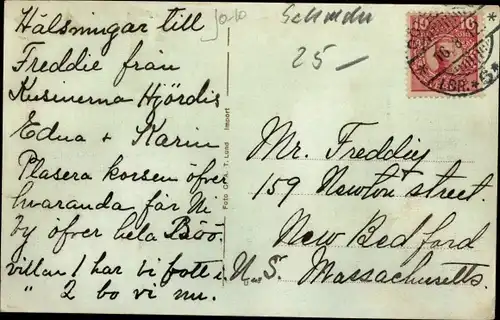 Hälsningar till
Freddie från
Kusinerna Hjördis
Edna + Karin
Plasera korsen öfver
hvaranda får Ni
by öfver hela Böö.
villan 1 har vi fått i
" 2 bo vi nu.
Foto & T. Lund Import
25 —
10 10
Mr. Freddie
159 Newton street.
New Bedford
Massachusetts.
U. S.